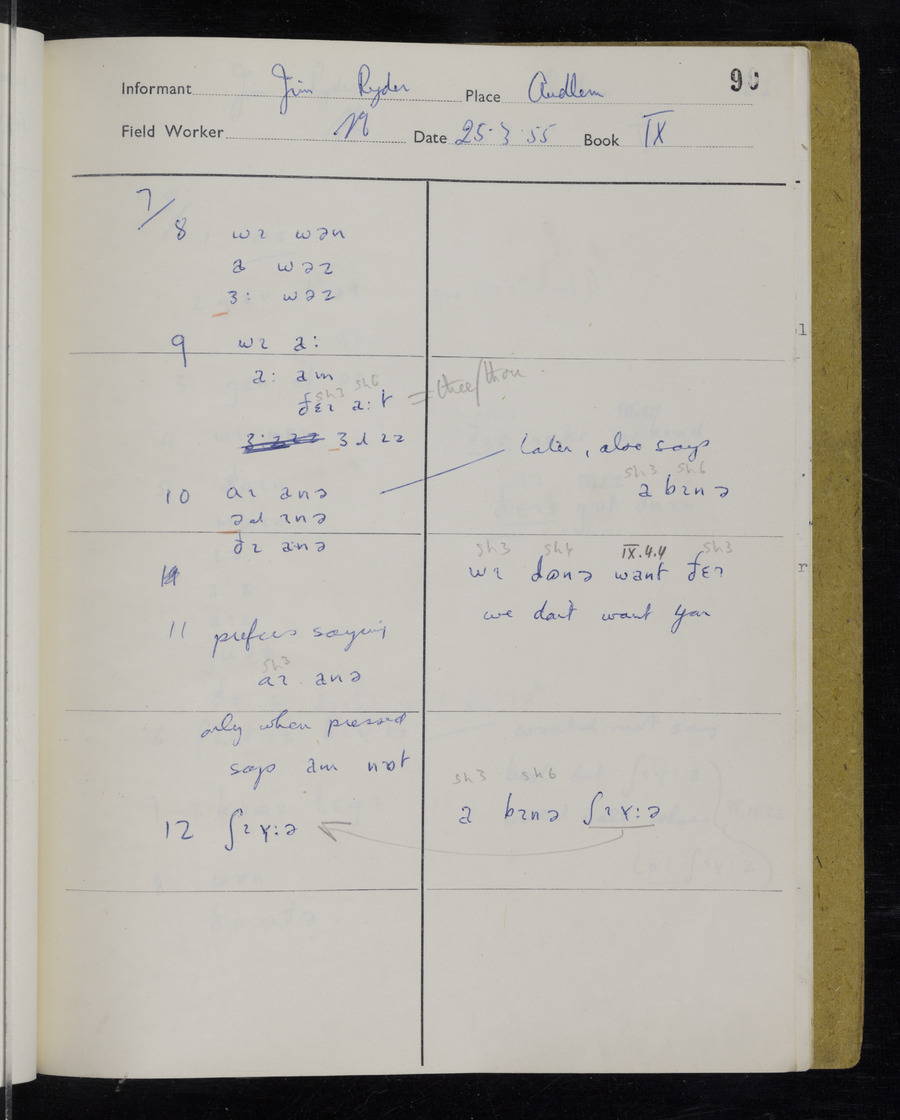 Informant Jim Ryder Place Audlem 90
Field Worker Date 25·3·55 Book IX
7/
8 wɪ wən
wəz
ɜ: wəz
9 wɪ a:
a: am
sh3 sh6
ðɛɪ a:t = thee/thou
later, also says
sh3 sh6
a bɪnə
10 aɪ anə
ðɪ anə
sh3 IX.4.4 sh3
wɪ want ðɛɪ
we don't want you
11 prefers saying
sh3
aɪ anə
only when pressed
says am not
sh3 sh6
a bɪnə ʃɪɤ:ə
12 ʃɪɤ:ə
l
r